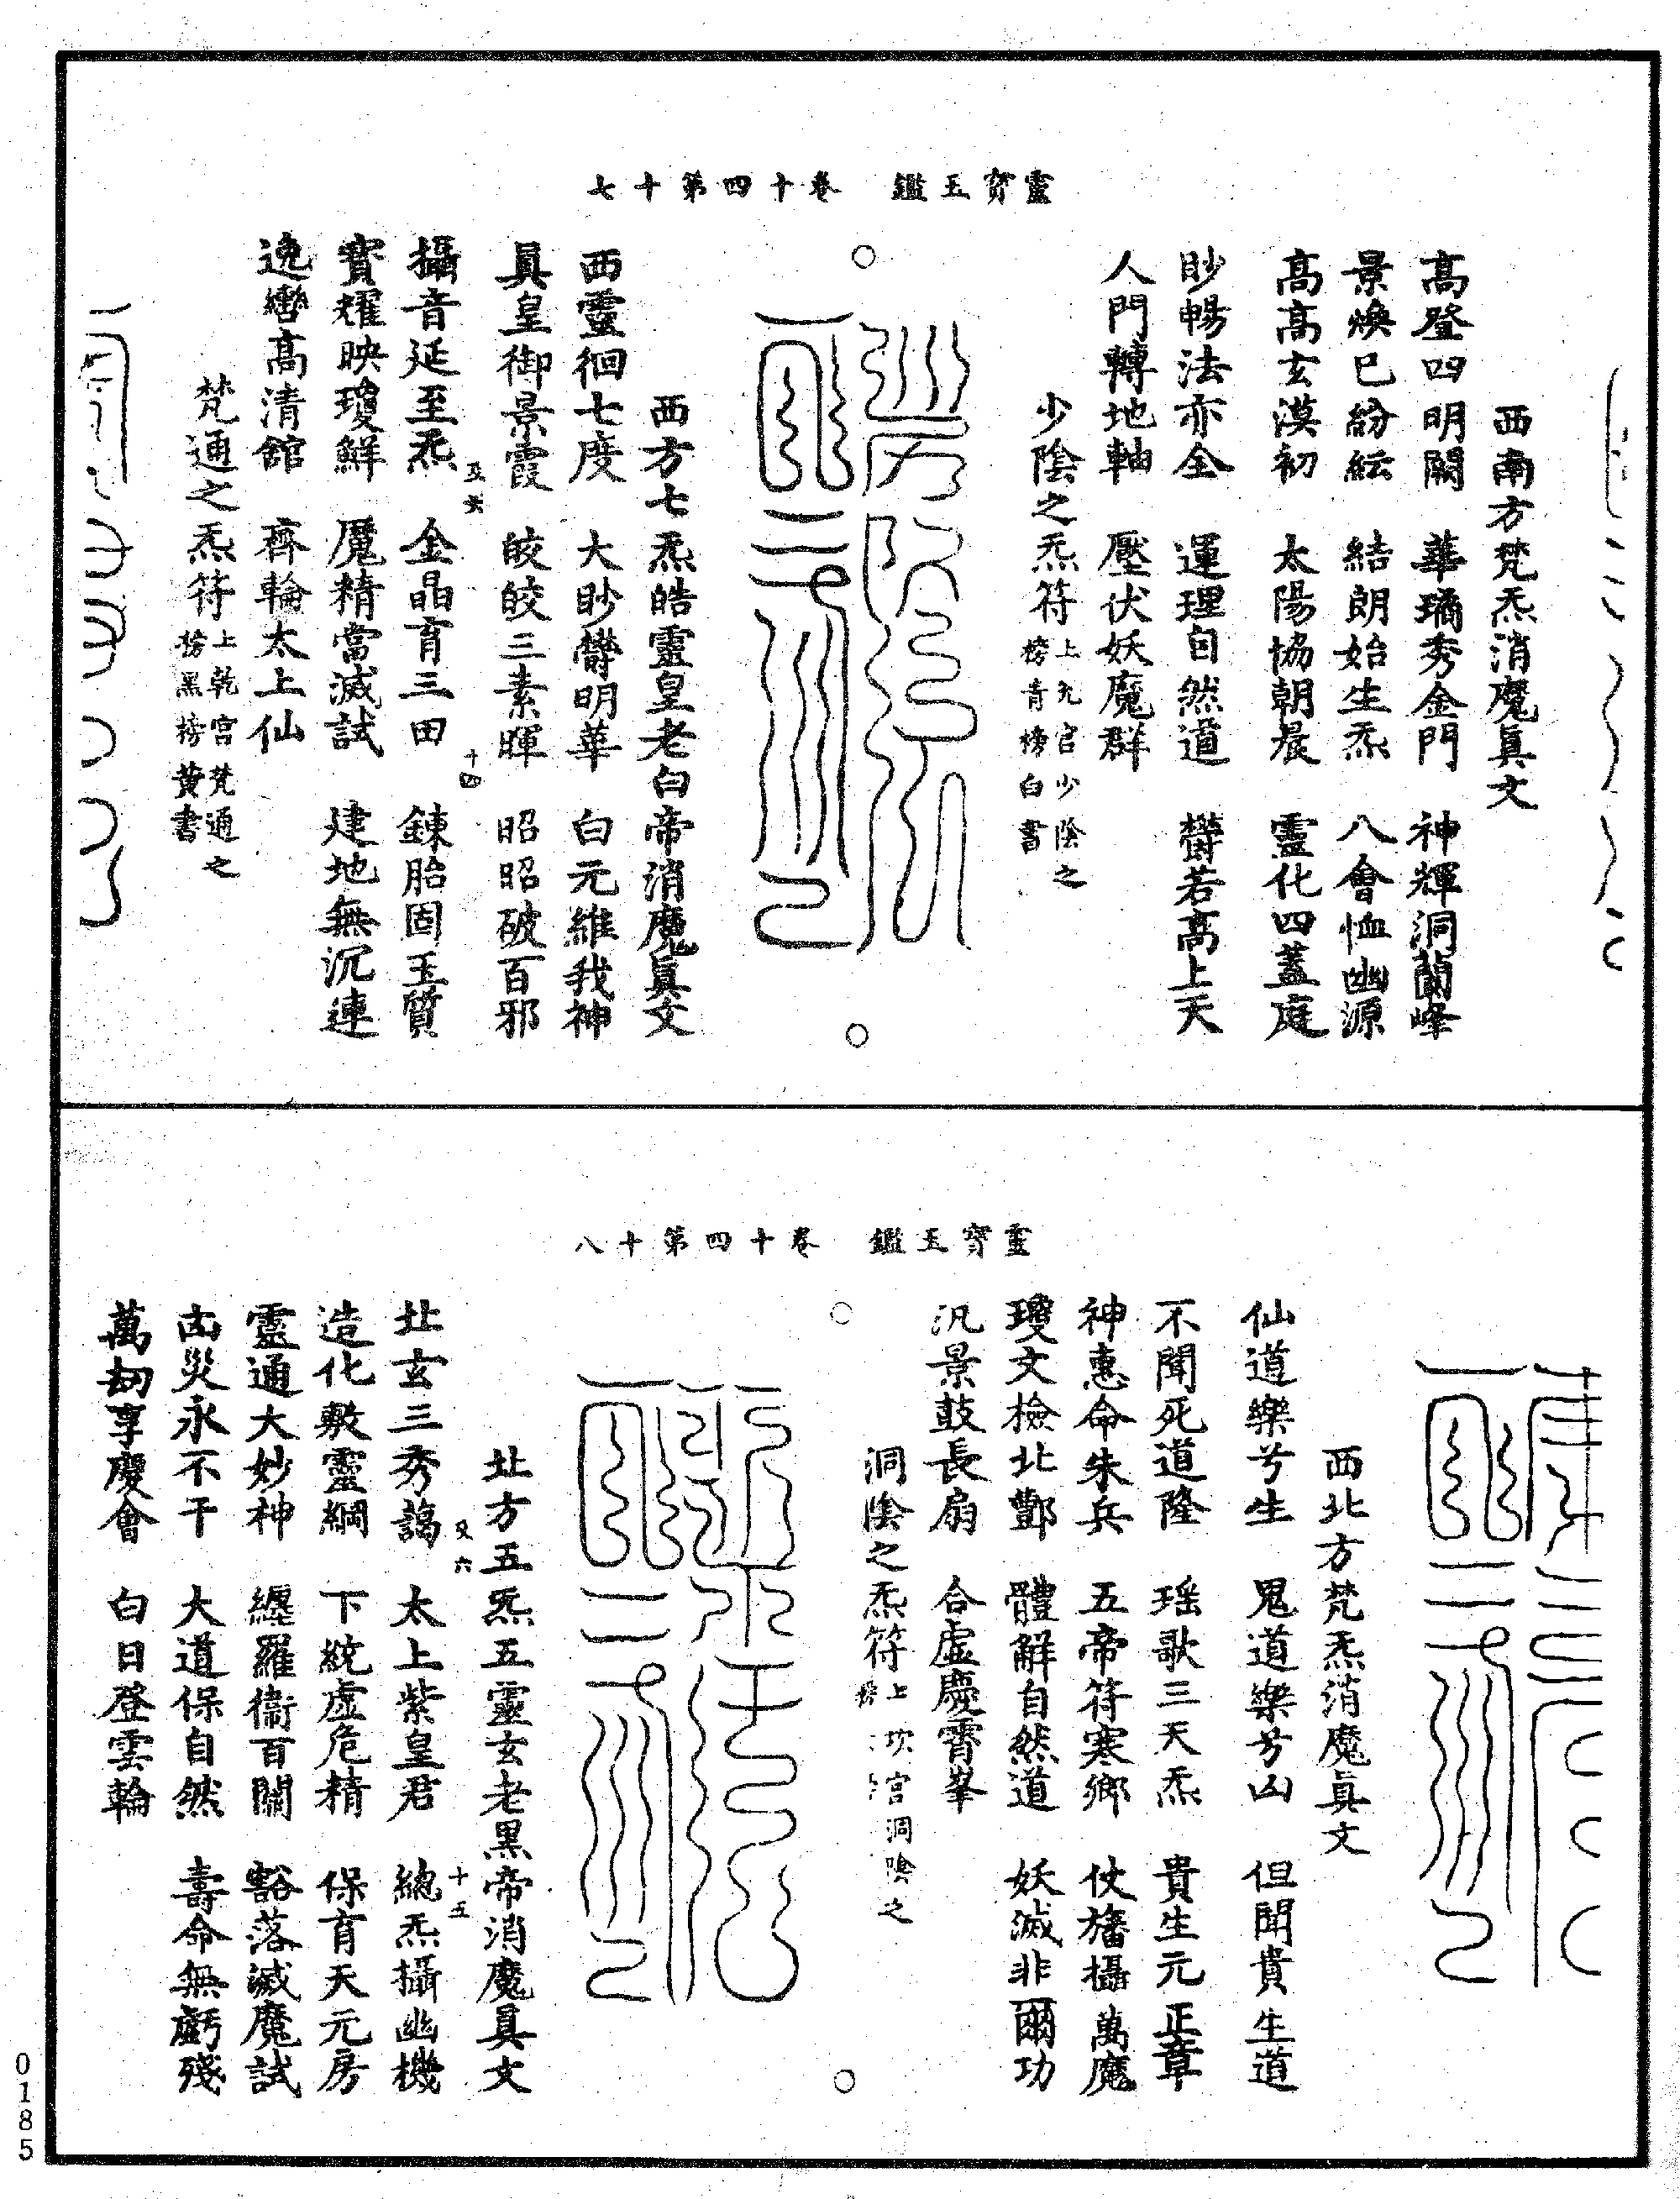 靈寶玉鑑　卷十四第十七
西南方梵炁消魔眞文
高登四明闕　華璚秀金門　神輝洞蘭峰
景煥已紛紜　結朗始生炁　八會恤幽源
高高玄漠初　太陽協朝晨　靈化四蓋庭
眇暢法亦全　運理自然道　欝若高上天
人門轉地軸　壓伏妖魔群
少陰之炁符上兌宮少陰之榜青榜白書
西方七炁皓靈皇老白帝消魔眞文
西靈徊七度　大眇欝明華　白元維我神
眞皇御景霞　皎皎三素暉　昭昭破百邪
攝音延至炁　金晶育三田　鍊胎固玉質
及六　十四
寶耀映瓊鮮　魔精當滅試　建地無沉連
逸轡高清館　齊輪太上仙
梵通之炁符上乾宮梵通之榜黑榜黃書
靈寶玉鑑　卷十四第十八
西北方梵炁消魔眞文
仙道樂兮生　鬼道樂兮凶　但聞貴生道
不聞死道隆　瑤歌三天炁　貴生元正章
神惠命朱兵　五帝符寒鄉　仗旛攝萬魔
瓊文檢北酆　體解自然道　妖滅非爾功
汎景鼓長扇　合虛慶霄峯
洞陰之炁符上坎宮洞陰之榜
北方五炁五靈玄老黑帝消魔眞文
北玄三秀謁　太上紫皇君　總炁攝幽機
及六　十五
造化敷靈綱　下統虛危精　保育天元房
靈通大妙神　纒羅衞百關　豁落滅魔試
凶災永不干　大道保自然　壽命無虧殘
萬劫享慶會　白日登雲輪
0185